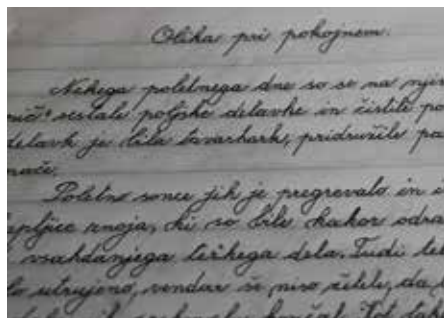 Olika pri pokojnem.
Nekega poletnega dne so se na njen
nič" sestale poljske delavke in čistile po
delavk je bila tovarkark, pridružile pa
nače.
Poletno sonce jih je pregrevalo in
apljice znoja, ki so bile kakor odra
vsakdanjega težkega dela. Tudi tel
lo utrujeno, vendar še niso želele, da